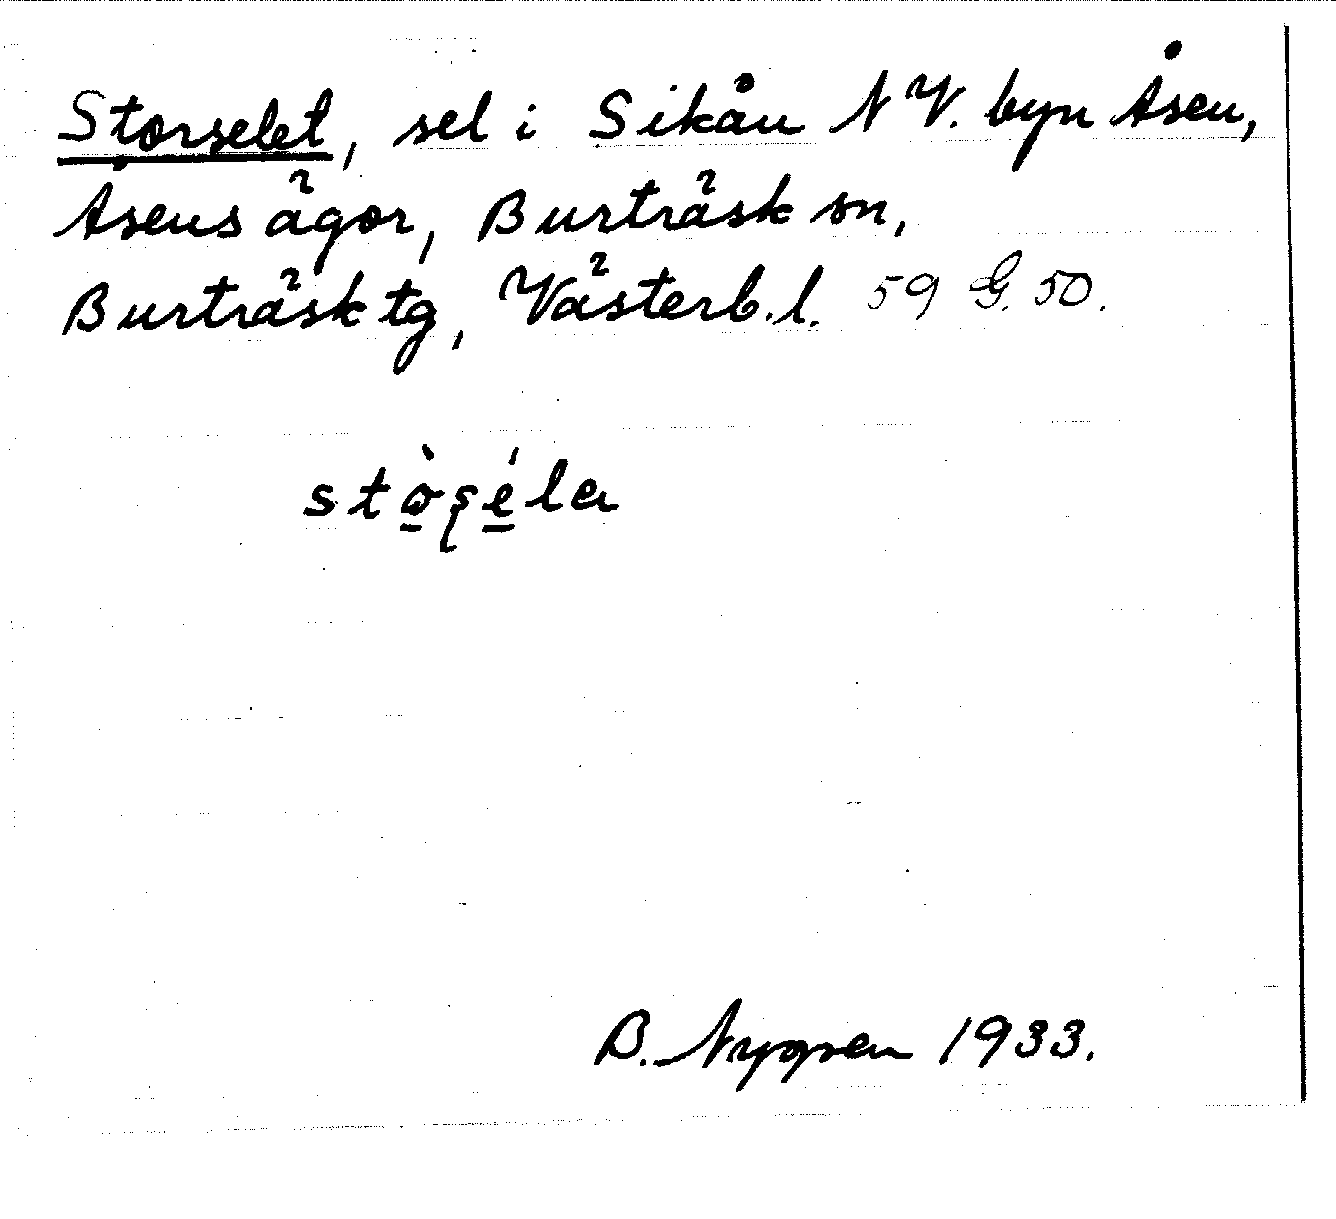 Storselet, sel i Sikån NV. byn Åsen,
Åsens ägor, Burträsk sn,
Burträsk tg, Västerb. l. 59 G. 50.
stò̠ʂé̠la
B. Nygren 1933.